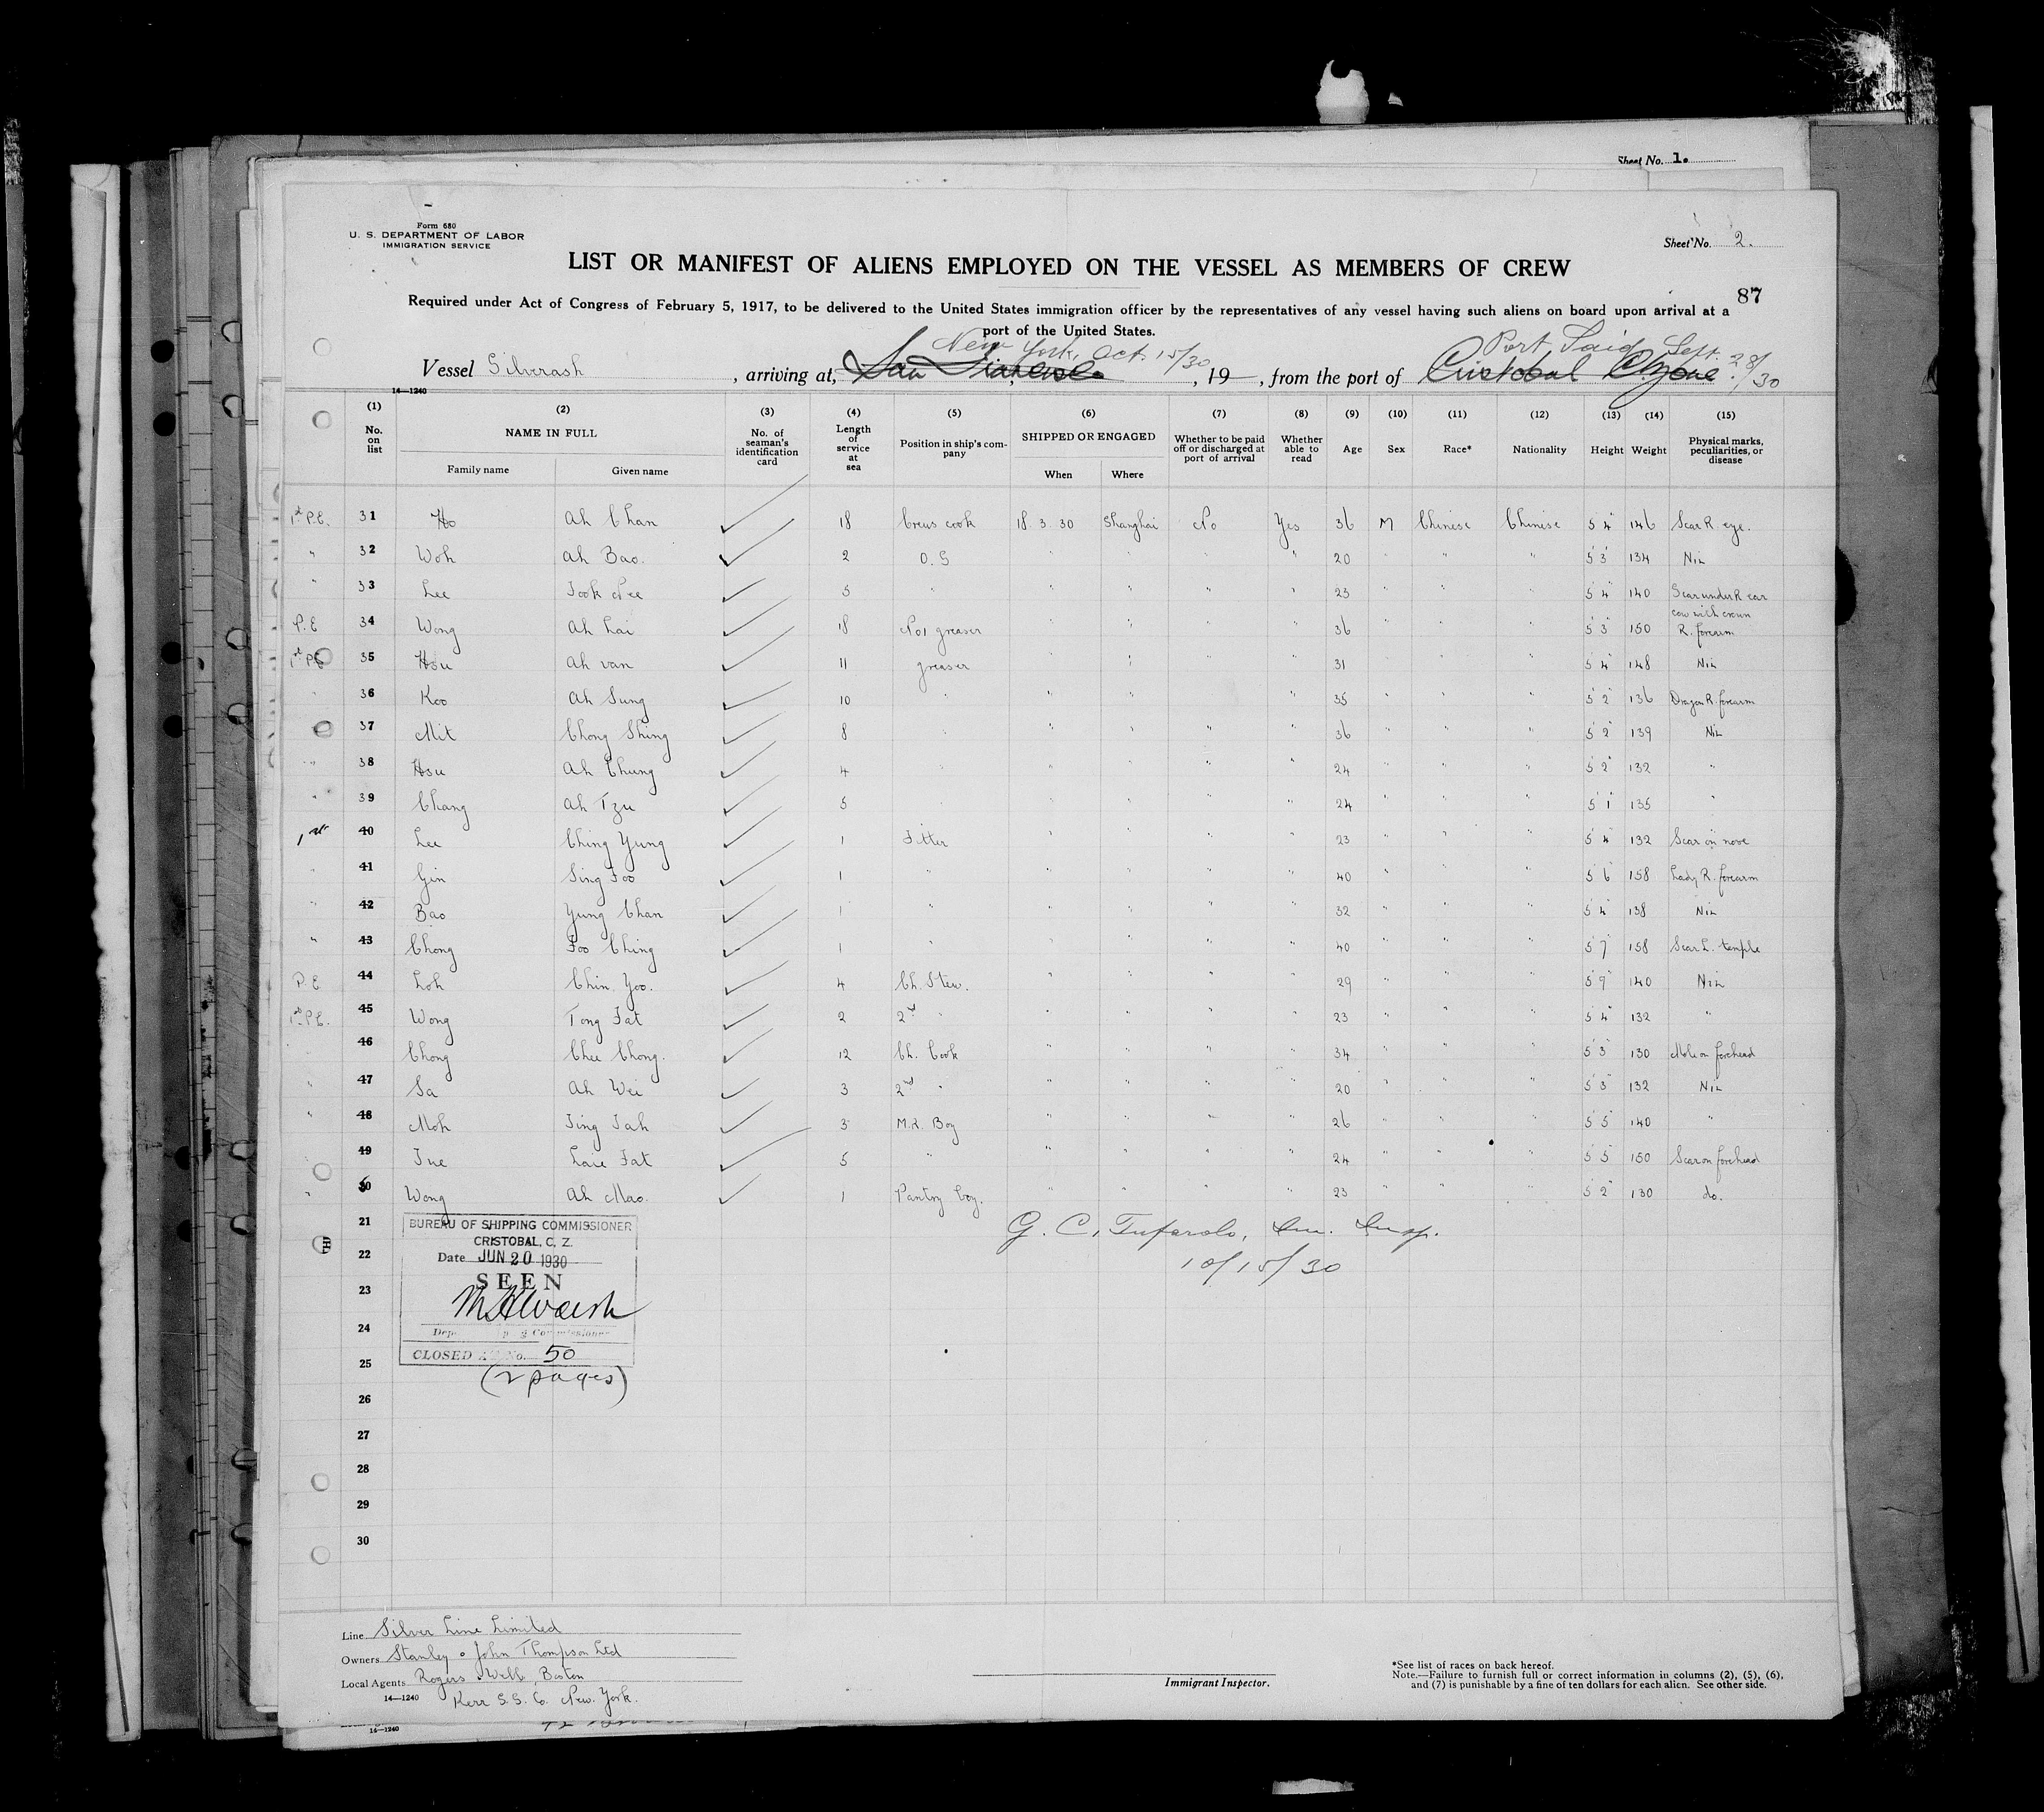 Sheet No. 1.
Form 680
U. S. DEPARTMENT OF LABOR
IMMIGRATION SERVICE
Sheet No. 2.
LIST OR MANIFEST OF ALIENS EMPLOYED ON THE VESSEL AS MEMBERS OF CREW
87
Required under Act of Congress of February 5, 1917, to be delivered to the United States immigration officer by the representatives of any vessel having such aliens on board upon arrival at a
port of the United States.
New York, Oct. 15/30 Port Said, Sept. 28/30
Vessel Silverash , arriving at, San Francisco , 19 , from the port of Cristobal C/Zone
14—1240
(1) (2) (3) (4) (5) (6) (7) (8) (9) (10) (11) (12) (13) (14) (15)
No. on list NAME IN FULL Family name Given name No. of seaman's identification card Length of service at sea Position in ship's company SHIPPED OR ENGAGED When Where Whether to be paid off or discharged at port of arrival Whether able to read Age Sex Race* Nationality Height Weight Physical marks, peculiarities, or disease
1st P.E. 31 Ho Ah Chan 18 Crews cook 18.3.30 Shanghai No Yes 36 M Chinese Chinese 5' 4" 146 Scar R. eye.
" 32 Woh Ah Bao. 2 O.S " " " " 20 " " " 5' 3" 134 Nil
" 33 Lee Took Nee 5 " " " " " 23 " " " 5' 4" 140 Scar under R ear
P.E 34 Wong Ah Lai 18 No1 greaser " " " " 36 " " " 5' 3" 150 cow with crown R. forearm
1st P.E 35 Hsu Ah van 11 greaser " " " " 31 " " " 5' 4" 148 Nil
" 36 Koo Ah Sung 10 " " " " " 35 " " " 5' 2" 136 Dragon R. forearm
" 37 Mit Chong Shing 8 " " " " " 36 " " " 5' 2" 139 Nil
" 38 Hsu Ah Chung 4 " " " " " 24 " " " 5' 2" 132 "
" 39 Chang Ah Tzu 5 " " " " " 24 " " " 5' 1" 135 "
1st 40 Lee Ching Yung 1 Fitter " " " " 23 " " " 5' 4" 132 Scar on nose
" 41 Gin Sing Foo 1 " " " " " 40 " " " 5' 6" 158 Lady R. forearm
" 42 Bao Yung Chan 1 " " " " " 32 " " " 5' 4" 138 Nil
" 43 Chong Foo Ching 1 " " " " " 40 " " " 5' 7" 158 Scar L. temple
P.E 44 Loh Chin Yoo. 4 Ch. Stew. " " " " 29 " " " 5' 9" 140 Nil
1st P.E. 45 Wong Tong Fat 2 2nd " " " " " 23 " " " 5' 4" 132 "
" 46 Chong Chee Chong. 12 Ch. Cook " " " " 34 " " " 5' 3" 130 Mole on forehead
" 47 Sa Ah Wei 3 2nd " " " " " 20 " " " 5' 3" 132 Nil
" 48 Moh Jing Jah 3 M.R. Boy " " " " 26 " " " 5' 5" 140 "
" 49 Jue Laie Fat 5 " " " " " 24 " " " 5' 5" 150 Scar on forehead
" 50 Wong Ah Mao. 1 Pantry boy. " " " " 23 " " " 5' 2" 130 do.
21
22
23
24
25
26
27
28
29
30
BUREAU OF SHIPPING COMMISSIONER
CRISTOBAL, C. Z.
Date JUN 20 1930
SEEN
CLOSED No. 50
(2 pages)
Im. Insp.
10/15/30
Line Silver Line Limited
Owners Stanley & John Thompson Ltd
Local Agents Rogers & Webb, Boston
14—1240 Kerr S.S. Co. New York.
Immigrant Inspector.
*See list of races on back hereof.
Note.—Failure to furnish full or correct information in columns (2), (5), (6),
and (7) is punishable by a fine of ten dollars for each alien. See other side.
14—1240